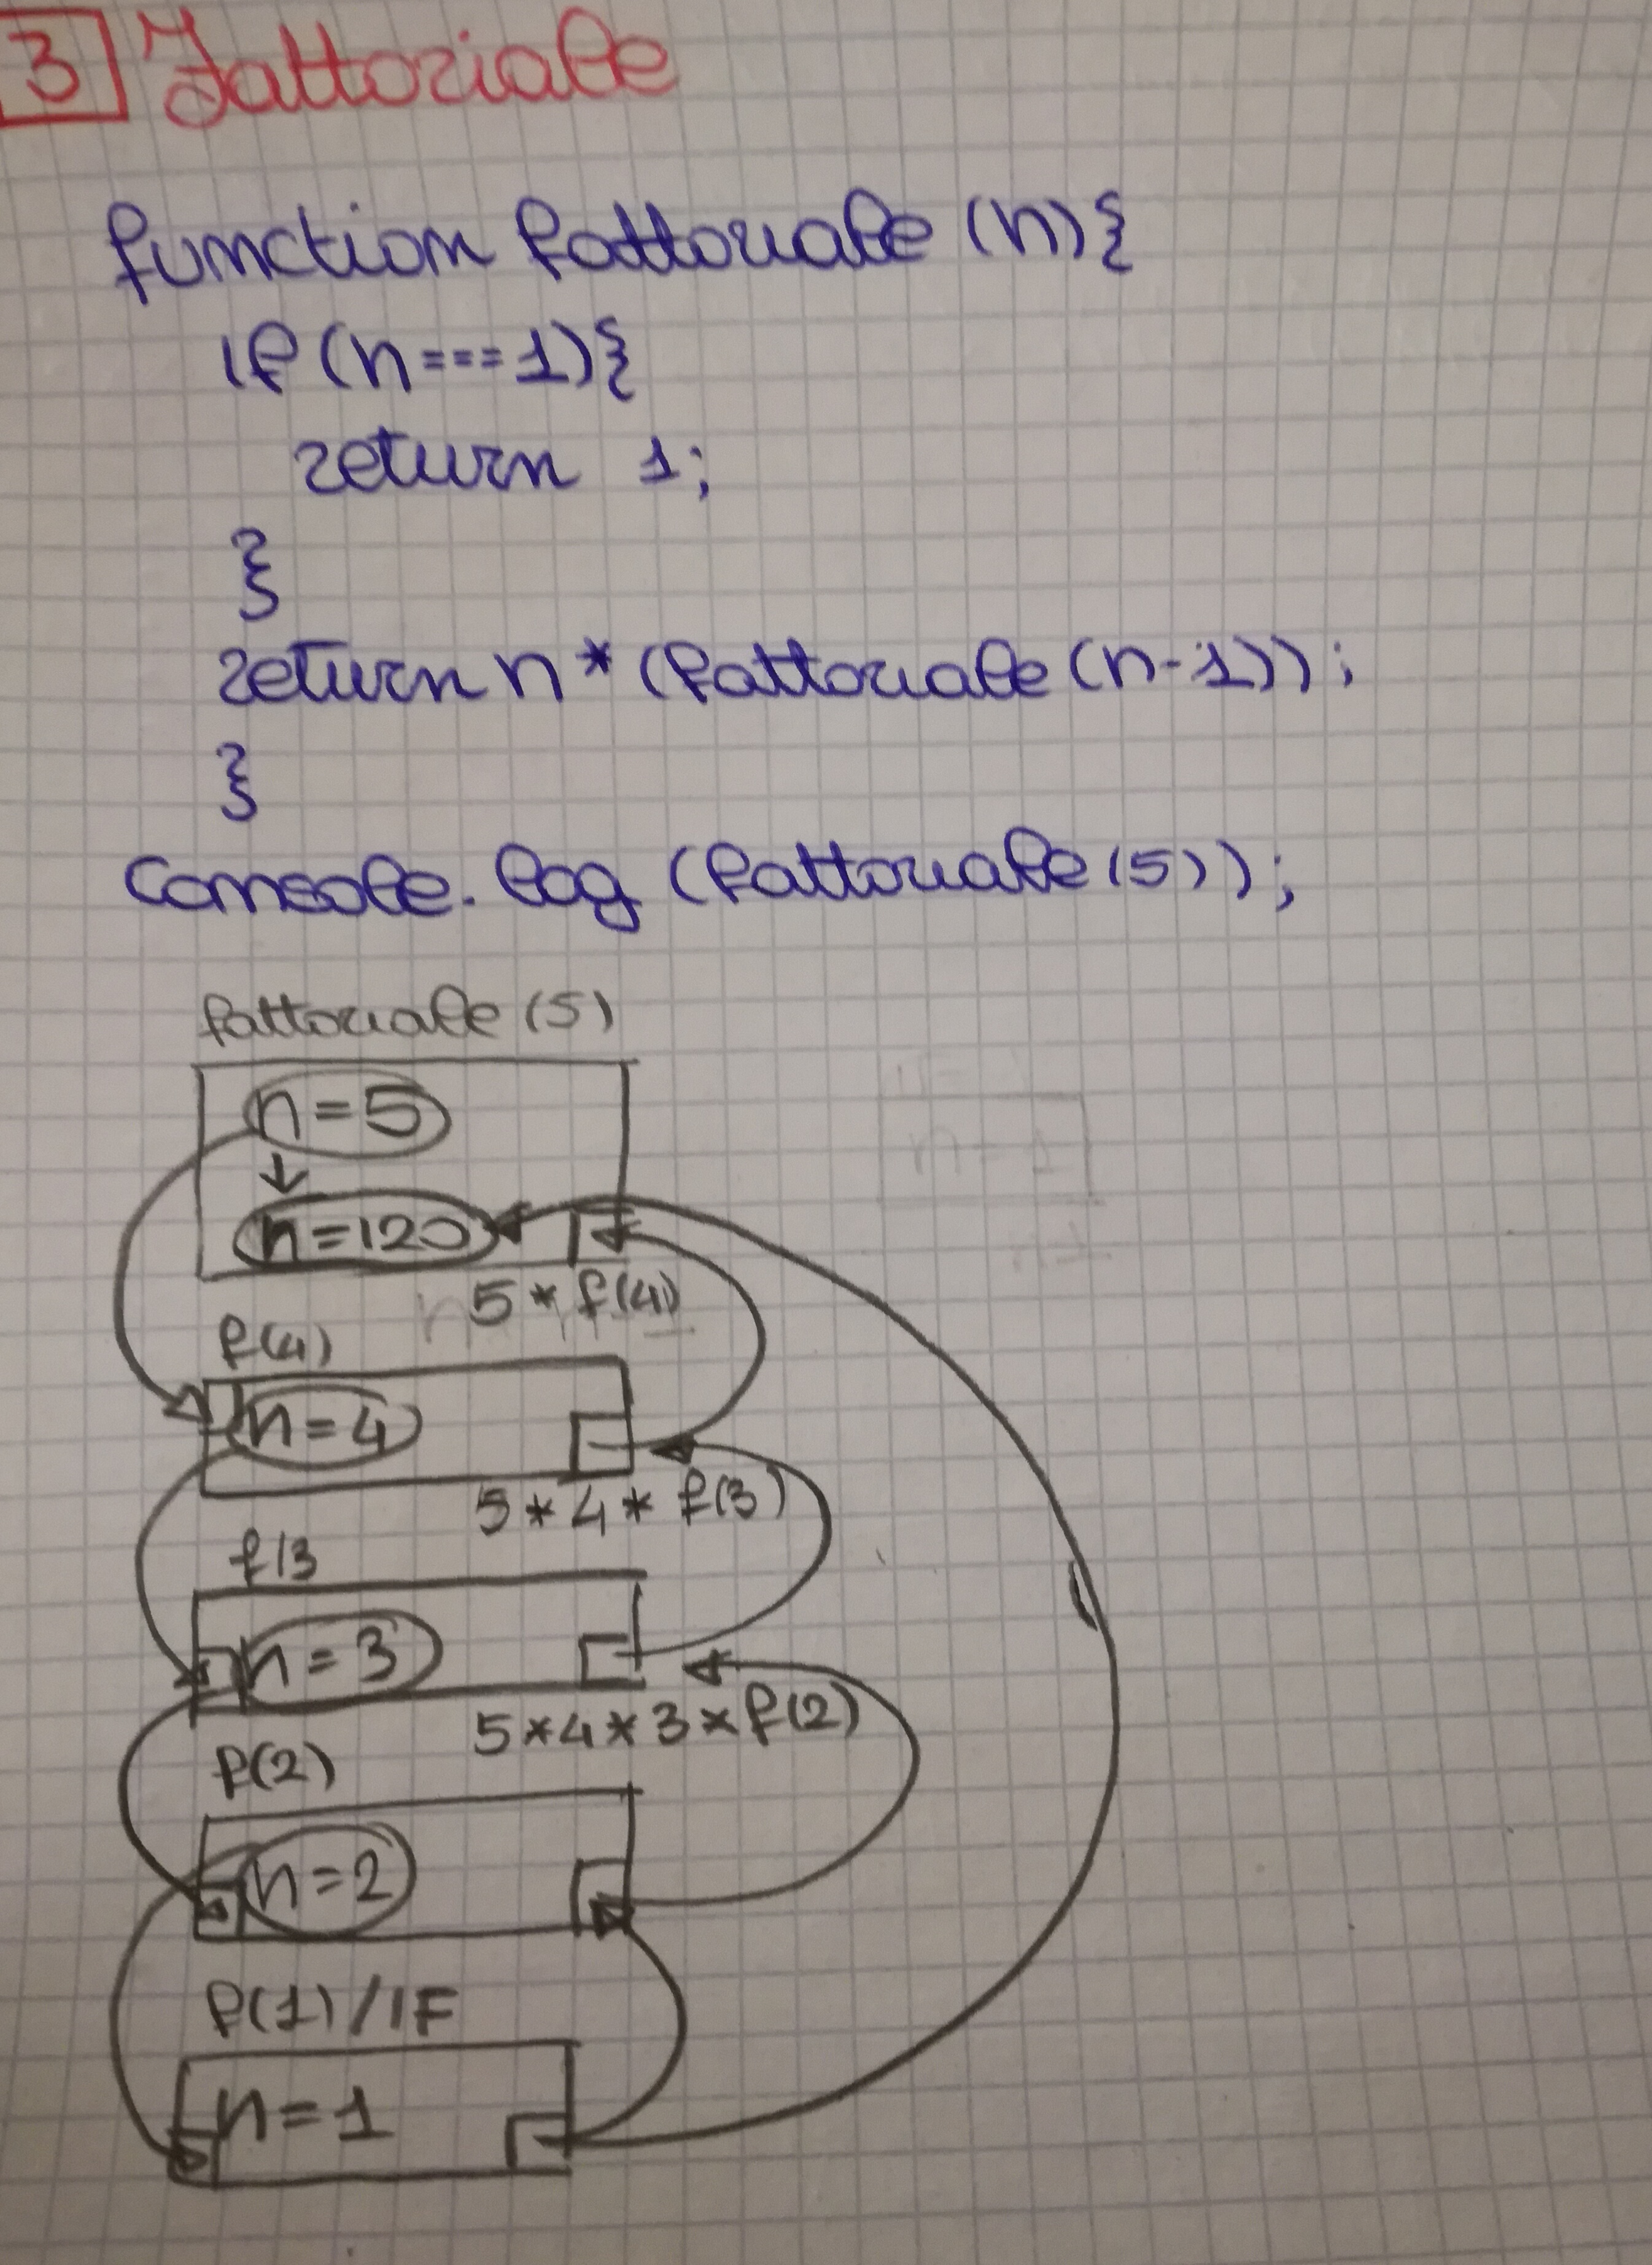 3 Fattoriale
function fattoriale (n){
if (n===1){
return 1;
}
return n * (fattoriale (n-1));
}
Console.log (fattoriale (5));
fattoriale (5)
n=5
↓
n=120
5 * f(4)
f(4)
n=4
5 * 4 * f(3)
f(3
n=3
5*4*3*f(2)
f(2)
n=2
f(1)/IF
n=1